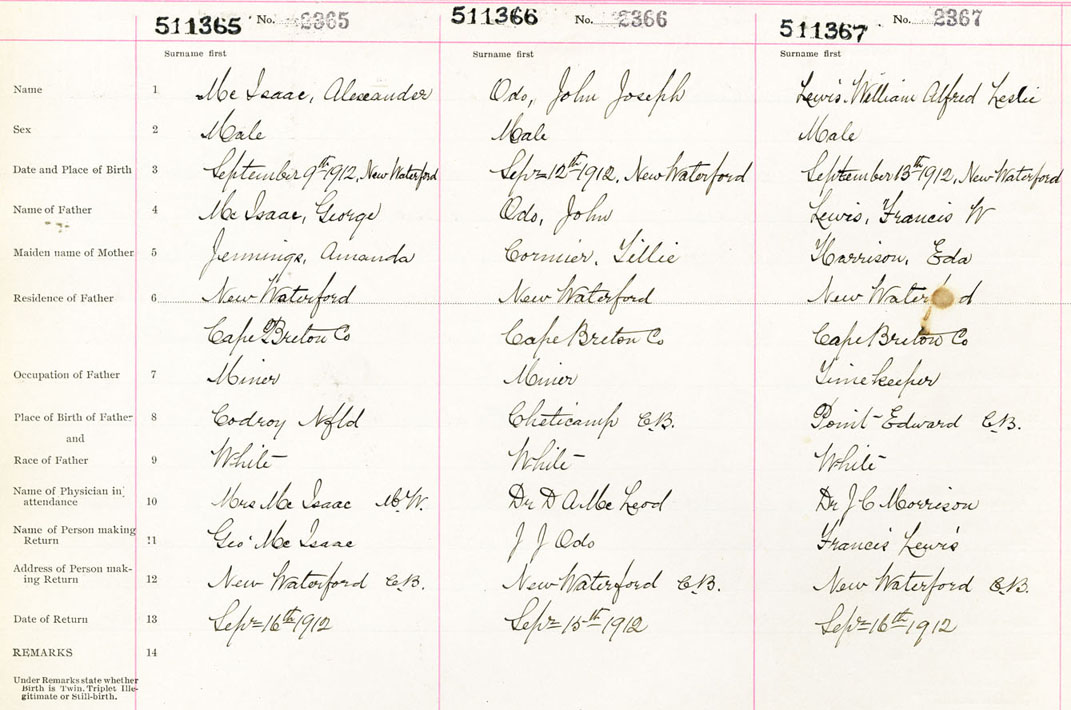 511365 No. 2365 511366 No. 2366 511367 No. 2367
Surname first Surname first Surname first
Name 1 Mc Isaac, Alexander Odo, John Joseph Lewis. William Alfred Leslie
Sex 2 Male Male Male
Date and Place of Birth 3 September 9th 1912, New Waterford Sepr= 12th 1912. New Waterford September 13th 1912, New Waterford
Name of Father 4 Mc Isaac, George Odo, John Lewis, Francis W
Maiden name of Mother 5 Jennings, Amanda Cormier, Tillie Harrison, Eda
Residence of Father 6 New Waterford New Waterford New Waterf d
Cape Breton Co Cape Breton Co Cape Breton Co
Occupation of Father 7 Miner Miner Timekeeper
Place of Birth of Father 8 Codroy Nfld Cheticamp C.B. Point Edward C.B.
and
Race of Father 9 White White White
Name of Physician in attendance 10 Mrs Mc Isaac M.W. Dr D A Mc Leod Dr J C Morrison
Name of Person making Return 11 Geo' Mc Isaac J J Odo Francis Lewis
Address of Person mak-ing Return 12 New Waterford C.B. New Waterford C.B. New Waterford C.B.
Date of Return 13 Sepr= 16th 1912 Sepr= 15th 1912 Sepr= 16th 1912
REMARKS 14
Under Remarks state whether
Birth is Twin. Triplet Ille-
gitimate or Still-birth.